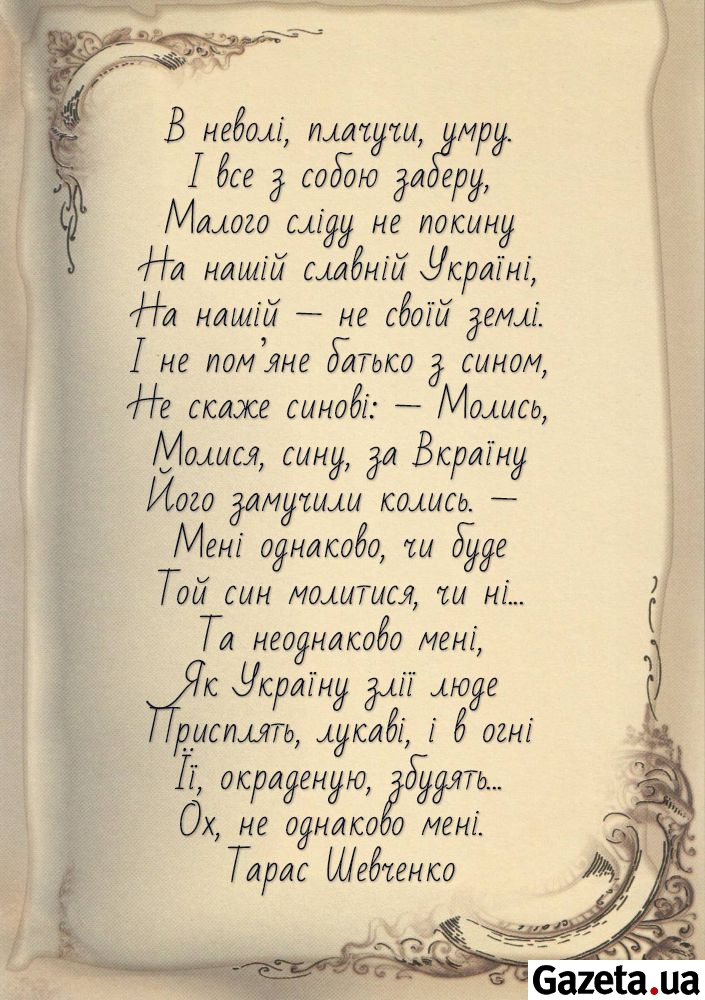 В неволі, плачучи, умру.
І все з собою заберу,
Малого сліду не покину
На нашій славній Україні,
На нашій — не своїй землі.
І не пом'яне батько з сином,
Не скаже синові: — Молись,
Молися, сину, за Вкраїну
Його замучили колись. —
Мені однаково, чи буде
Той син молитися, чи ні...
Та неоднаково мені,
Як Україну злії люде
Присплять, лукаві, і в огні
Її, окраденую, збудять...
Ох, не однаково мені.
Тарас Шевченко
Gazeta.ua